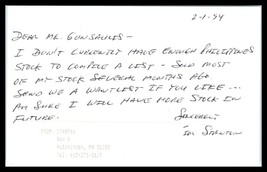 2-1-94
Dear Mr. Gunsallus -
I don't currently have enough Philippines
stock to compile a list - sold most
of my stock several months ago.
Send me a wantlist if you like ... I
am sure I will have more stock in
future.
Sincerely
Tim